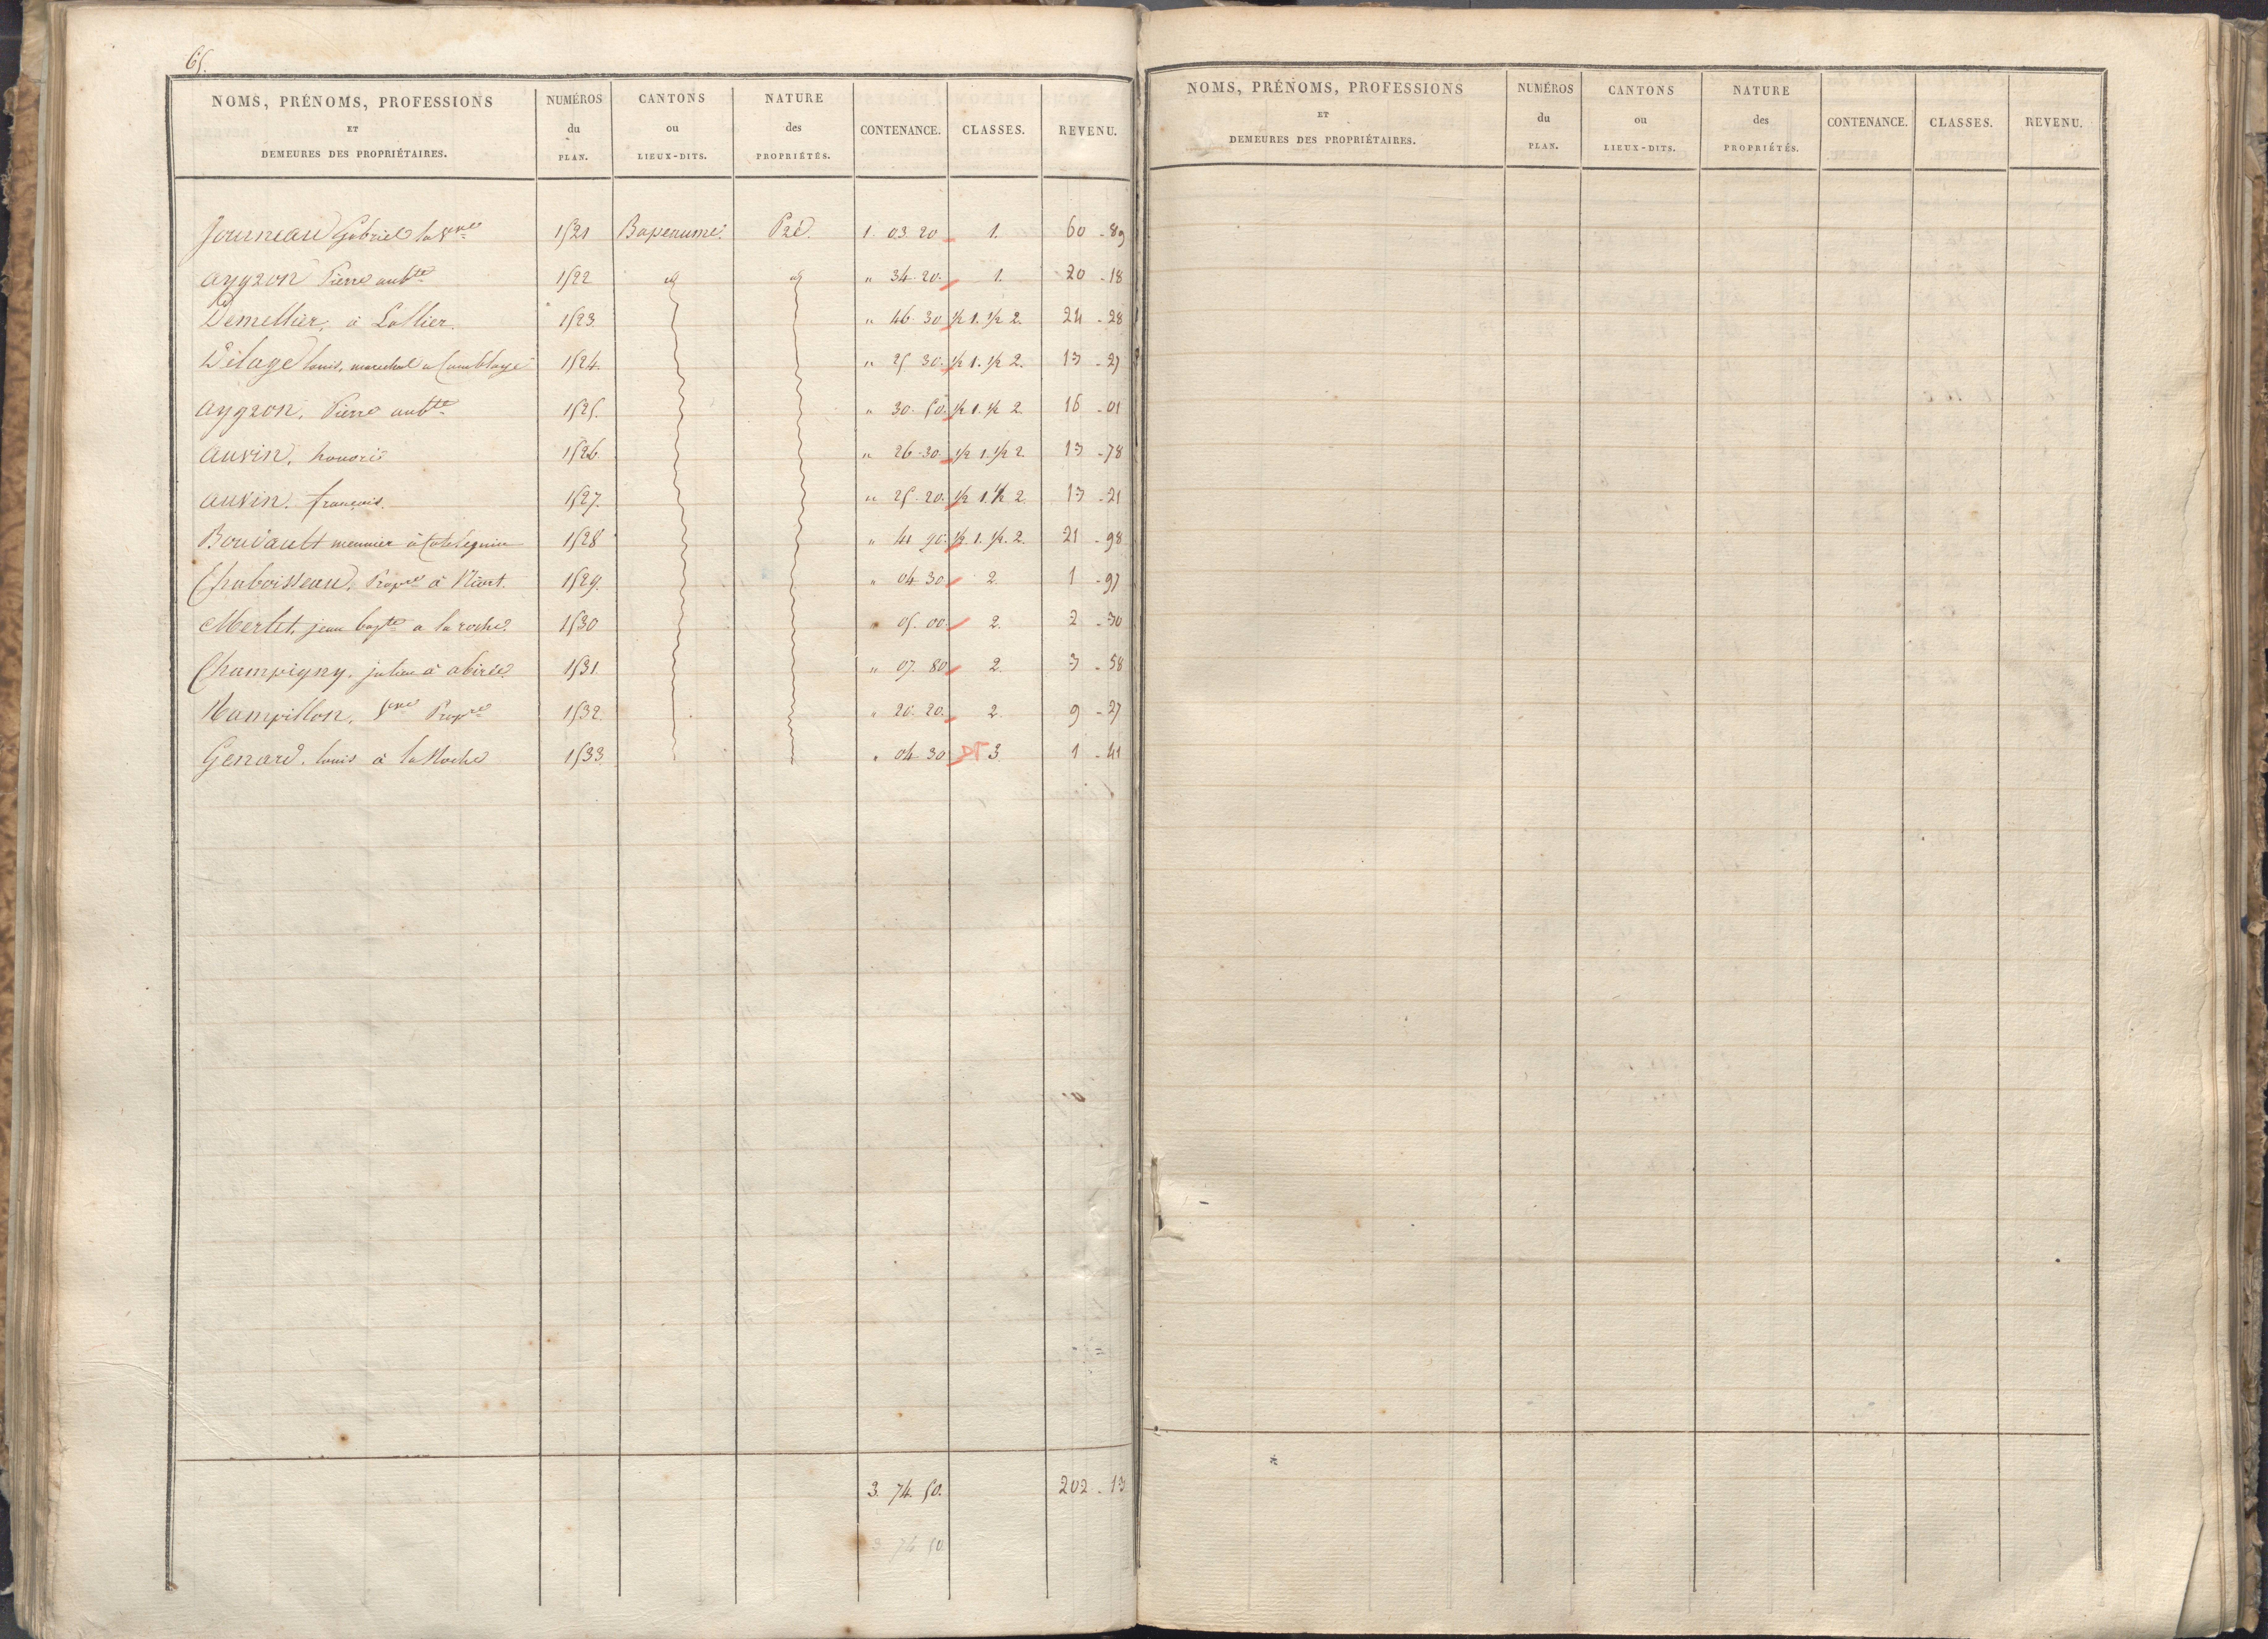 65.
NOMS, PRÉNOMS, PROFESSIONS
ET
DEMEURES DES PROPRIÉTAIRES.
NUMÉROS
du
PLAN.
CANTONS
ou
LIEUX-DITS.
NATURE
des
PROPRIÉTÉS.
CONTENANCE.
CLASSES.
REVENU.
Journeau Gabriel la Vve 1521 Bapeaume. Pré. 1. 03. 20 1. 60 - 89
aygron Pierre aubte 1522 id id " 34. 20. 1. 20 - 18
Demellier, à 1523. " 46. 30 ½ 1. ½ 2. 24 - 28
Delage louis, marechal a 1524. " 25 30. ½ 1. ½ 2. 13 - 27
aygron, Pierre aubte 1525. " 30. 50. ½ 1. ½ 2. 16 - 01
auvin, honoré 1526. " 26 - 30. ½ 1. ½ 2. 13 - 78
auvin. françois. 1527. " 25. 20. ½ 1. ½ 2. 13 - 21
meunier à 1528 " 41 90. ½. 1. ½. 2. 21 - 98
Chaboisseau, Propre à Niort. 1529. " 04 30 2. 1 - 97
Merlet, jean bapte a la roche. 1530 " 05. 00. 2. 2 - 30
Champigny, julien à abirée 1531 " 07. 80 2. 3 - 58
Hampillon, Vve Propre 1532. " 20. 20. 2. 9 - 27
Genard. louis à la Roche 1533 " 04 30 3. 1 - 41
3. 74. 50. 202 - 13
3 74 50
NOMS, PRÉNOMS, PROFESSIONS
ET
DEMEURES DES PROPRIÉTAIRES.
NUMÉROS
du
PLAN.
CANTONS
ou
LIEUX-DITS.
NATURE
des
PROPRIÉTÉS.
CONTENANCE.
CLASSES.
REVENU.